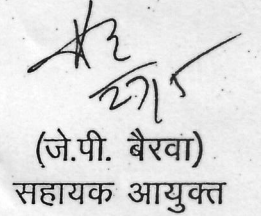 27/5
(जे.पी. बैरवा)
सहायक आयुक्त